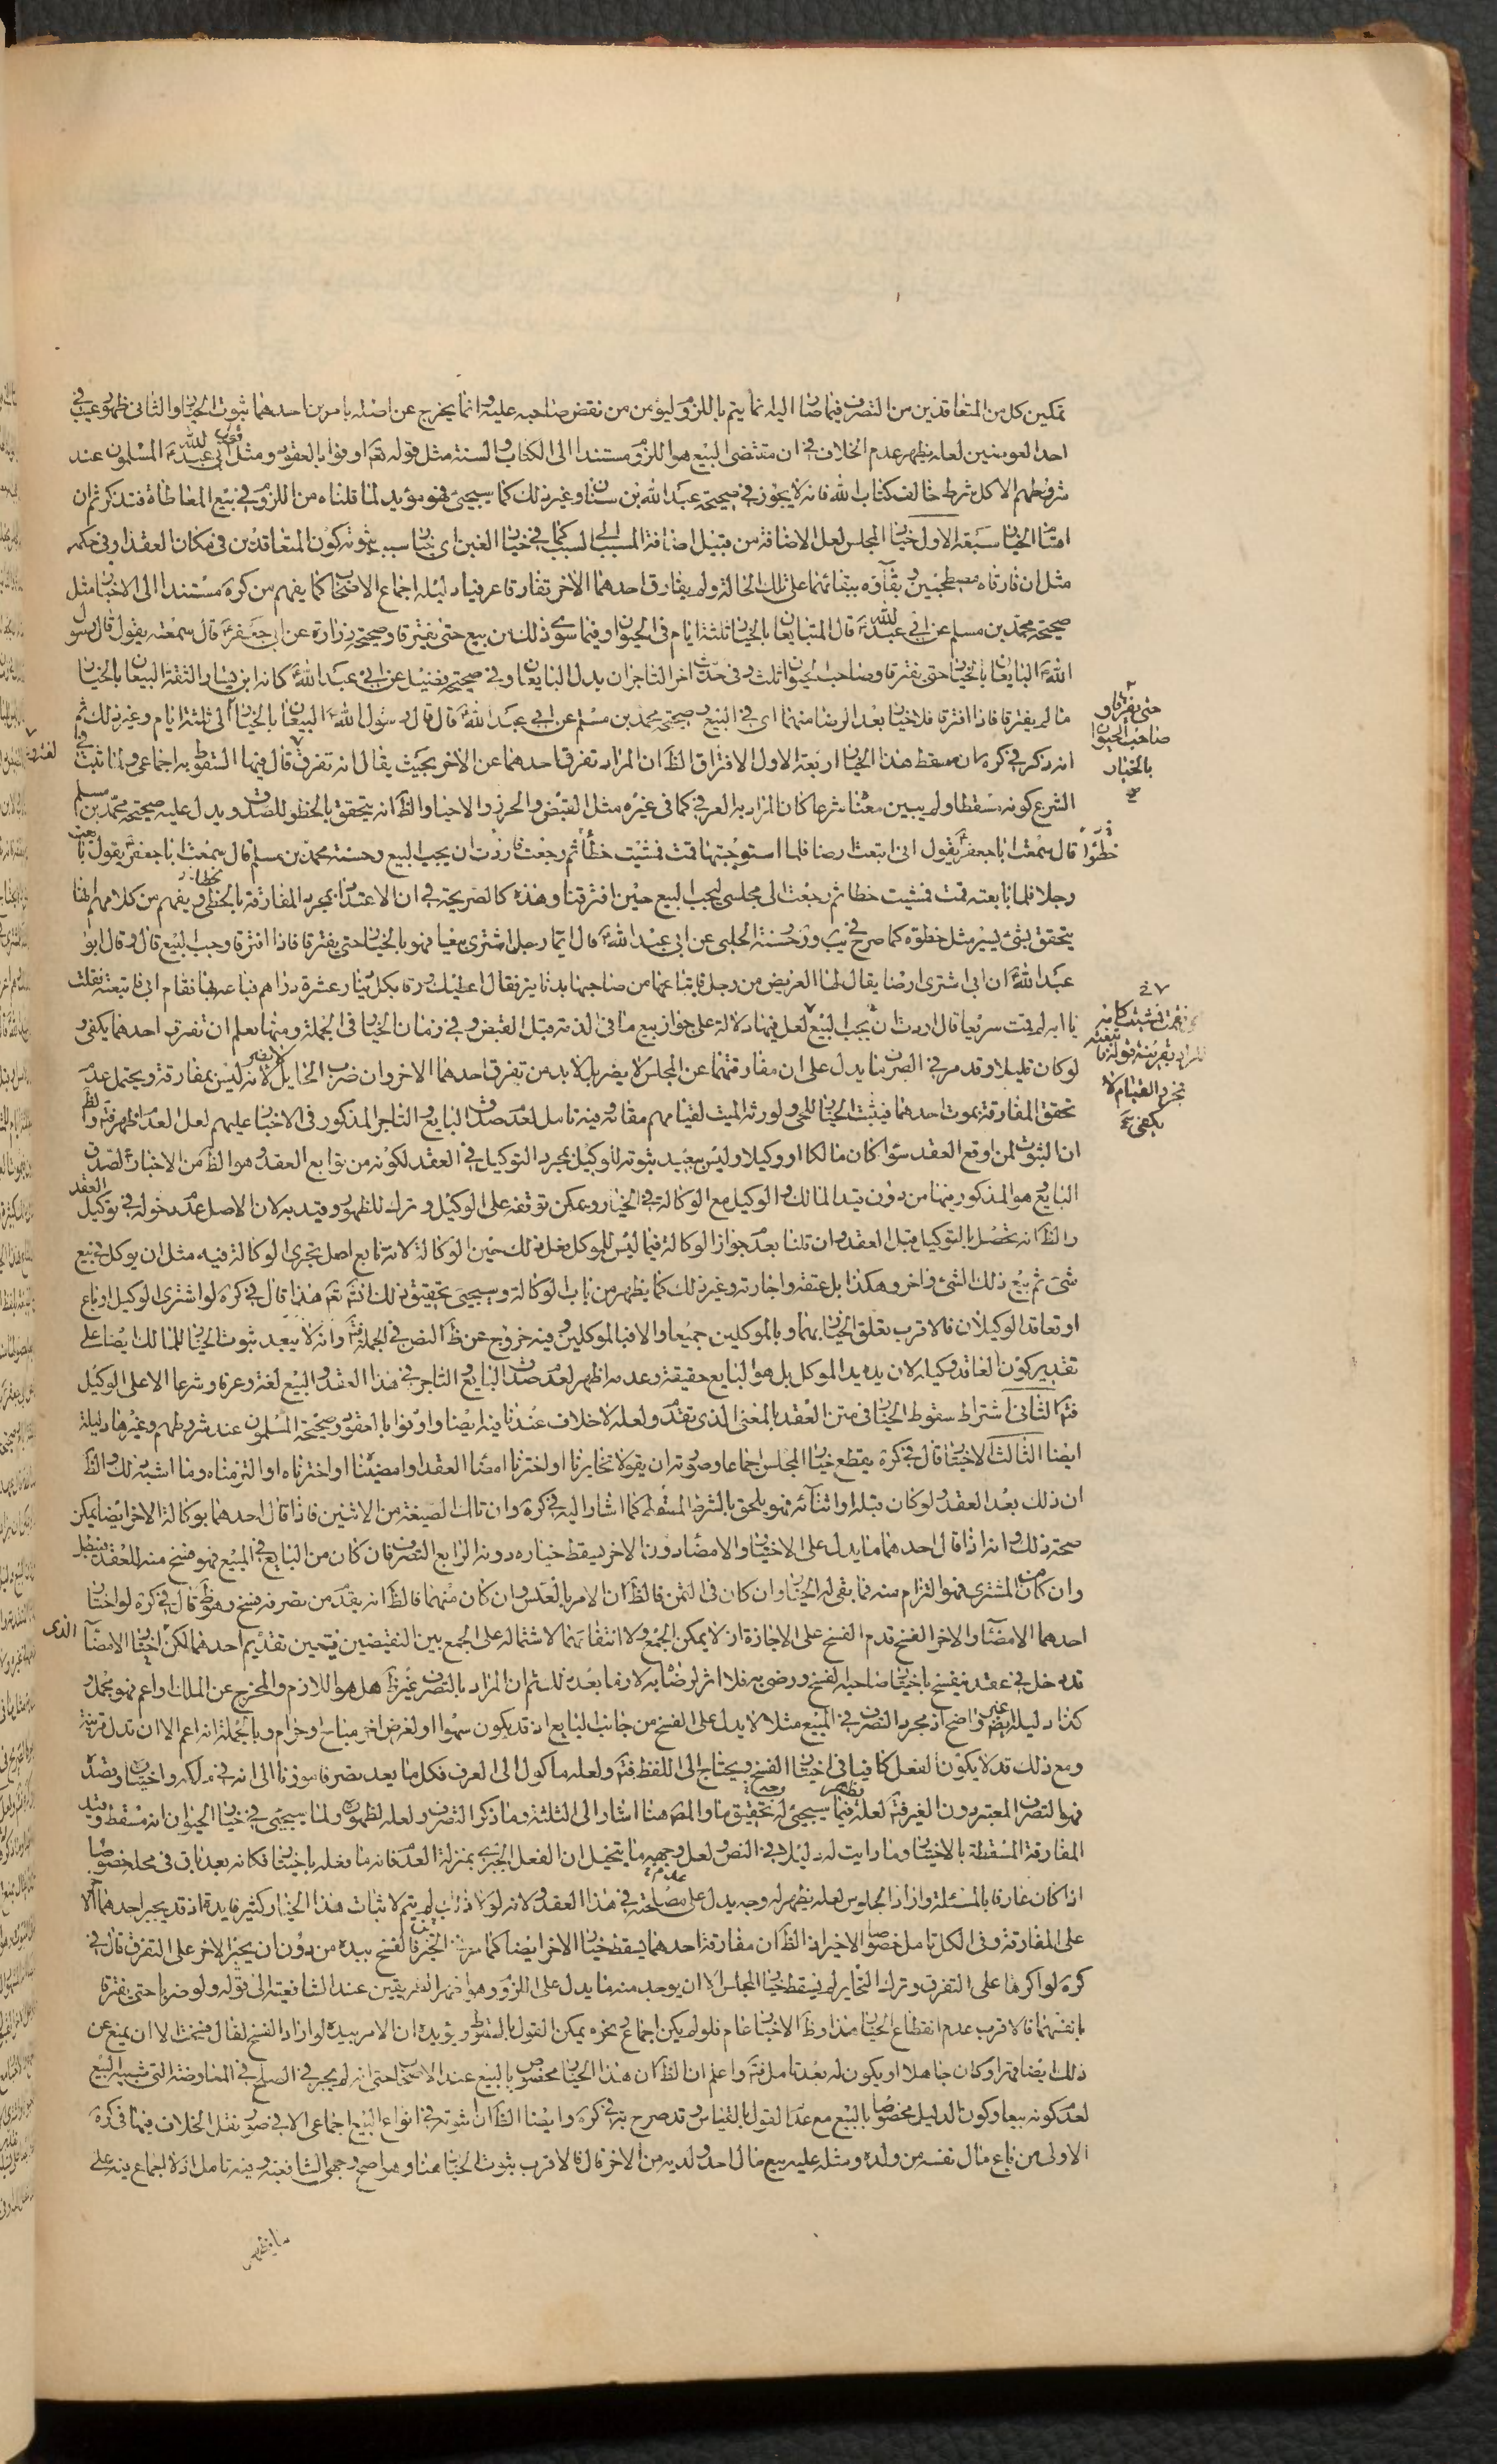 تمكين كل من المتعاقدين من التصرف فيما صار اليه انما يتم باللزوم ليؤمن من نقض صاحبه عليه وانما يخرج عن اصله بامرين احدهما ثبوت الخيار والثاني ظهور عيب في
احد العوضين لعله يظهر عدم الخلاف في ان مقتضى البيع هو اللزوم مستندا الى الكتاب والسنة مثل قوله تعالى اوفوا بالعقود ومثل قول ابي عبد الله المسلمون عند
شروطهم الا كل شرط خالف كتاب الله فانه لا يجوز في صحيحة عبد الله بن سنان وغير ذلك كما سيجيئ فهو مؤيد لما قلناه من اللزوم في بيع المعاطاة فتذكر ثم ان
اقسام الخيار سبعة الاول خيار المجلس لعل الاضافة من قبيل اضافة المسبب الى السبب كما في خيار الغبن اي خيار سبب ثبوته كون المتعاقدين في مكان العقد او في حكمه
مثل ان فارقاه مصطحبين وبقاؤه ببقائهما على تلك الحالة ولم يفارق احدهما الاخر تفارقا عرفيا دليله اجماع الاصحاب كما يفهم من كره مستندا الى الاخبار مثل
صحيحة محمد بن مسلم عن ابي عبد الله قال المتبايعان بالخيار ثلثة ايام في الحيوان وفيما سوى ذلك من بيع حتى يفترقا وصحيحة زرارة عن ابي جعفر قال سمعته يقول قال رسول
الله البايعان بالخيار حتى يفترقا وصاحب الحيوان ثلث وفي حديث اخر التاجران بدل البايعان وفي صحيحة فضيل عن ابي عبد الله كانه ابن يسار الثقة البيعان بالخيار
ما لم يفترقا فاذا افترقا فلا خيار بعد الرضا منهما اى في البيع وصحيحة محمد بن مسلم عن ابي عبد الله قال قال رسول الله البيعان بالخيار الى ثلثة ايام وغير ذلك ثم
انه ذكر في كره ان مسقط هذا الخيار اربعة الاول الافتراق الظ ان المراد تفرق احدهما عن الاخر بحيث يقال انه تفرق قال فيها السقوط به اجماعي ولما ثبت في
الشرع كونه مسقطا ولم يبين معناه شرعا كان المراد به العرفي كما في غيره مثل القبض والحرز والاحياء والظ انه يتحقق بالخطو للصدق ويدل عليه صحيحة محمد بن مسلم
قال سمعت ابا جعفر يقول انى ابتعت ارضا فلما استوجبتها قمت فمشيت خطأ ثم رجعت فاردت ان يجب البيع وحسنة محمد بن مسلم قال سمعت ابا جعفر يقول بايعت
رجلا فلما بايعته قمت فمشيت خطا ثم رجعت الى مجلسي ليجب البيع حين افترقنا وهذه كالصريحة في ان الاعتداد بمجرد المفارقة بالخطى ويفهم من كلامهم انها
يتحقق بشئ يسير مثل خطوه كما صرح في وحسنة الحلبي عن ابي عبد الله قال ايما رجل اشترى بيعا فهو بالخيار حتى يفترقا فاذا افترقا وجب البيع قال وقال ابو
عبد الله ان ابي اشترى ارضا يقال لها العريض من رجل فابتاعها من صاحبها بدنانير فقال اعطيك ورقا بكل دينار عشرة دراهم فباعه بها فقام ابي فاتبعته فقلت
يا ابه لم قمت سريعا قال اردت ان يجب البيع لعل فيها دلالة على جواز بيع ما في الذمة قبل القبض وفي زمان الخيار في الجملة ومنها يعلم ان تفرق احدهما يكفي و
لو كان قليلا وقد مر في الصرف ما يدل على ان مفارقتهما عن المجلس لا يضر بل لا بد من تفرق احدهما الاخر وان ضرب الحايل لا يضر لانه ليس بمفارقة ويحتمل عدم
تحقق المفارقة بموت احدهما فيثبت الخيار للحي ولورثة الميت لقيامهم مقامه وفيه تامل لعدم صدق البايع والتاجر المذكور في الاخبار عليهم لعل العدم اظهر فتم والظ
ان الثبوت لمن اوقع العقد سواء كان مالكا او وكيلا وليس ببعيد ثبوته للوكيل بمجرد التوكيل في العقد لكونه من توابع العقد وهو الظ من الاخبار لصدق
البايع هو المذكور فيها من دون قيد المالك والوكيل مع الوكالة في الخيار ويمكن توقفه على الوكيل وترك للظهور وقيد به لان الاصل عدم دخوله في توكيل العقد
والظ انه تحصل بالتوكيل قبل العقد وان قلنا بعدم جواز الوكالة فيما ليس للموكل فعل ذلك حين الوكالة لانه تابع اصل يجرى الوكالة فيه مثل ان يوكل في بيع
شئ ثم بيع ذلك الشئ في اخر وهكذا بل عتقه واجارته وغير ذلك كما يظهر من باب الوكالة وسيجئ تحقيق ذلك انشاء الله تعالى هذا قال في كره لو اشترى الوكيل او باع
او تعاقد الوكيلان فالاقرب تعلق الخيار بهما وبالموكلين جميعا والا فبالموكلين وفيه خروج عن ظ النص في الجملة فتم وانه لا يبعد ثبوت الخيار للمالك ايضا على
تقدير كون العاقد وكيله لان يده يد الموكل بل هو البايع حقيقة وعدمه اظهر لعدم صدق البايع والتاجر في هذا العقد والبيع لغة وعرفا وشرعا الا على الوكيل
فتم الثاني اشتراط سقوط الخيار في متن العقد بالمعنى الذى تقدم ولعله لا خلاف عندنا فيه ايضا واوفوا بالعقود وصحيحة المسلمون عند شروطهم وغيرها دليله
ايضا الثالث الاختيار قال في كره يقطع خيار المجلس اجماعا وصورته ان يقولا تخايرنا او اخترنا امضاء العقد او امضينا او اخترناه او التزمناه وما اشبه ذلك والظ
ان ذلك بعد العقد ولو كان قبله او اثنائه فهو يلحق بالشرط المسقط كما اشار اليه في كره وان تلك الصيغة من الاثنين فاذا قال احدهما بوكالة الاخر ايضا يمكن
صحة ذلك وانه اذا قال احدهما ما يدل على الاختيار والامضاء دون الاخر يسقط خياره دونه الرابع التصرف فان كان من البايع في المبيع فهو فسخ منه للعقد فيبطل
وان كان من المشترى فهو التزام منه فما بقي له الخيار وان كان في الثمن فالظ ان الامر بالعكس وان كان منهما فالظ انه يقدم من تصرفه فسخ وهو ظ قال في كره لو اختار
احدهما الامضاء والاخر الفسخ قدم الفسخ على الاجازة اذ لا يمكن الجمع ولا انتفائهما لاشتماله على الجمع بين النقيضين فتعين تقديم احدهما لكن اختيار الامضاء الذى
قد دخل في عقد ينفسخ باختيار صاحبه الفسخ ورضي به فلا اثر لرضاه به لازما بعد ذلك ثم ان المراد بالتصرف غير ظ هل هو اللازم والمخرج عن الملك او اعم فهو مجمل و
كذا دليله ايضا غير واضح اذ مجرد التصرف في المبيع مثلا لا يدل على الفسخ من جانب البايع اذ قد يكون سهوا او لغرض اخر مباح او حرام وبالجملة انه اعم الا ان تدل قرينة
ومع ذلك قد لا يكون الفعل كافيا في اختيار الفسخ ويحتاج الى اللفظ فتم ولعله ماكول الى العرف فكل ما يعد تصرفا موذنا الى انه في ملكه واختياره وقصده
فهو التصرف المعتبر دون الغير فتم لعله فيما سيجيئ له يظهر تحقيق ما والمص هنا اشار الى الثلثة وما ذكر التصرف ولعله لظهوره ولما سيجيئ في خيار الحيوان انه مسقط وقيد
المفارقة المسقطة بالاختيار وما رايت له دليلا في النص ولعل وجهه ما يتخيل ان الفعل الجبرى بمنزلة العدم فانه ما فعله باختياره فكانه بعد باق في محله خصوصا
اذا كان عارفا بالمسئلة واراد الجلوس لعله يظهر له وجه يدل على عدم مصلحته في هذا العقد ولانه لولا ذلك لم يتم لاثبات هذا الخيار كثير فايدة اذ قد يجبر احدهما الاخر
على المفارقة وفي الكل تامل خصوصا الاخير اذ الظ ان مفارقة احدهما يسقط خيار الاخر ايضا كما مر فالفسخ بيده من دون ان يجبر الاخر على التفرق قال في
كره لو اكرها على التفرق وترك التخاير لم يسقط خيار المجلس الا ان يوجد منه ما يدل على اللزوم وهو اظهر الطريقين عند الشافعية الى قوله ولو ضربا حتى يفترقا
بانفسهما فالاقرب عدم انقطاع الخيار هذا وظ الاخبار عام فلو لم يكن اجماع ونحوه يمكن القول بالسقوط ويؤيده ان الامر بيده لو اراد الفسخ لقال فسخت الا ان يمنع عن
ذلك ايضا قهرا او كان جاهلا او يكون له بعد تامل فتم واعلم ان الظ ان هذا الخيار مخصوص بالبيع عند الاصحاب حتى انه لم يجر في الصلح في المعاوضة التي شبيه البيع
لعدم كونه بيعا وكون الدليل مخصوصا بالبيع مع عدم القول بالقياس وقد صرح به في كره وايضا الظ ان ثبوته في انواع البيع اجماعي الا في صور نقل الخلاف فيها في كره
الاولى من باع مال نفسه من ولده ومثله عليه بيع مال احد ولديه من الاخر قال فالاقرب ثبوت الخيار هنا وهو اصح وجهي الشافعية وفيه تامل اذ لا اجماع فيه على
حتى يفترقا و
صاحب الحيوان
بالخيار
خطوا
تتبعته
بمجرد القيام لا
يكفي